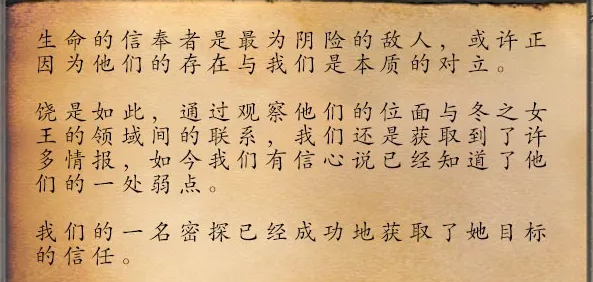 生命的信奉者是最为阴险的敌人，或许正
因为他们的存在与我们是本质的对立。
饶是如此，通过观察他们的位面与冬之女
王的领域间的联系，我们还是获取到了许
多情报，如今我们有信心说已经知道了他
们的一处弱点。
我们的一名密探已经成功地获取了她目标
的信任。